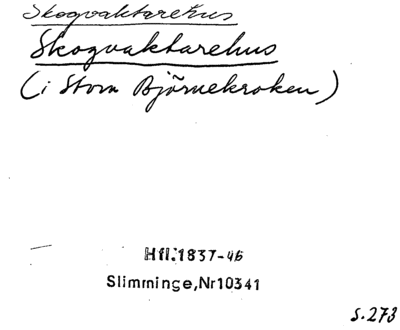 Skogvaktarehus
Skogvaktarehus
(i Stora Björnekroken)
Hfl.1837-46
Slimminge,Nr10341
s.273